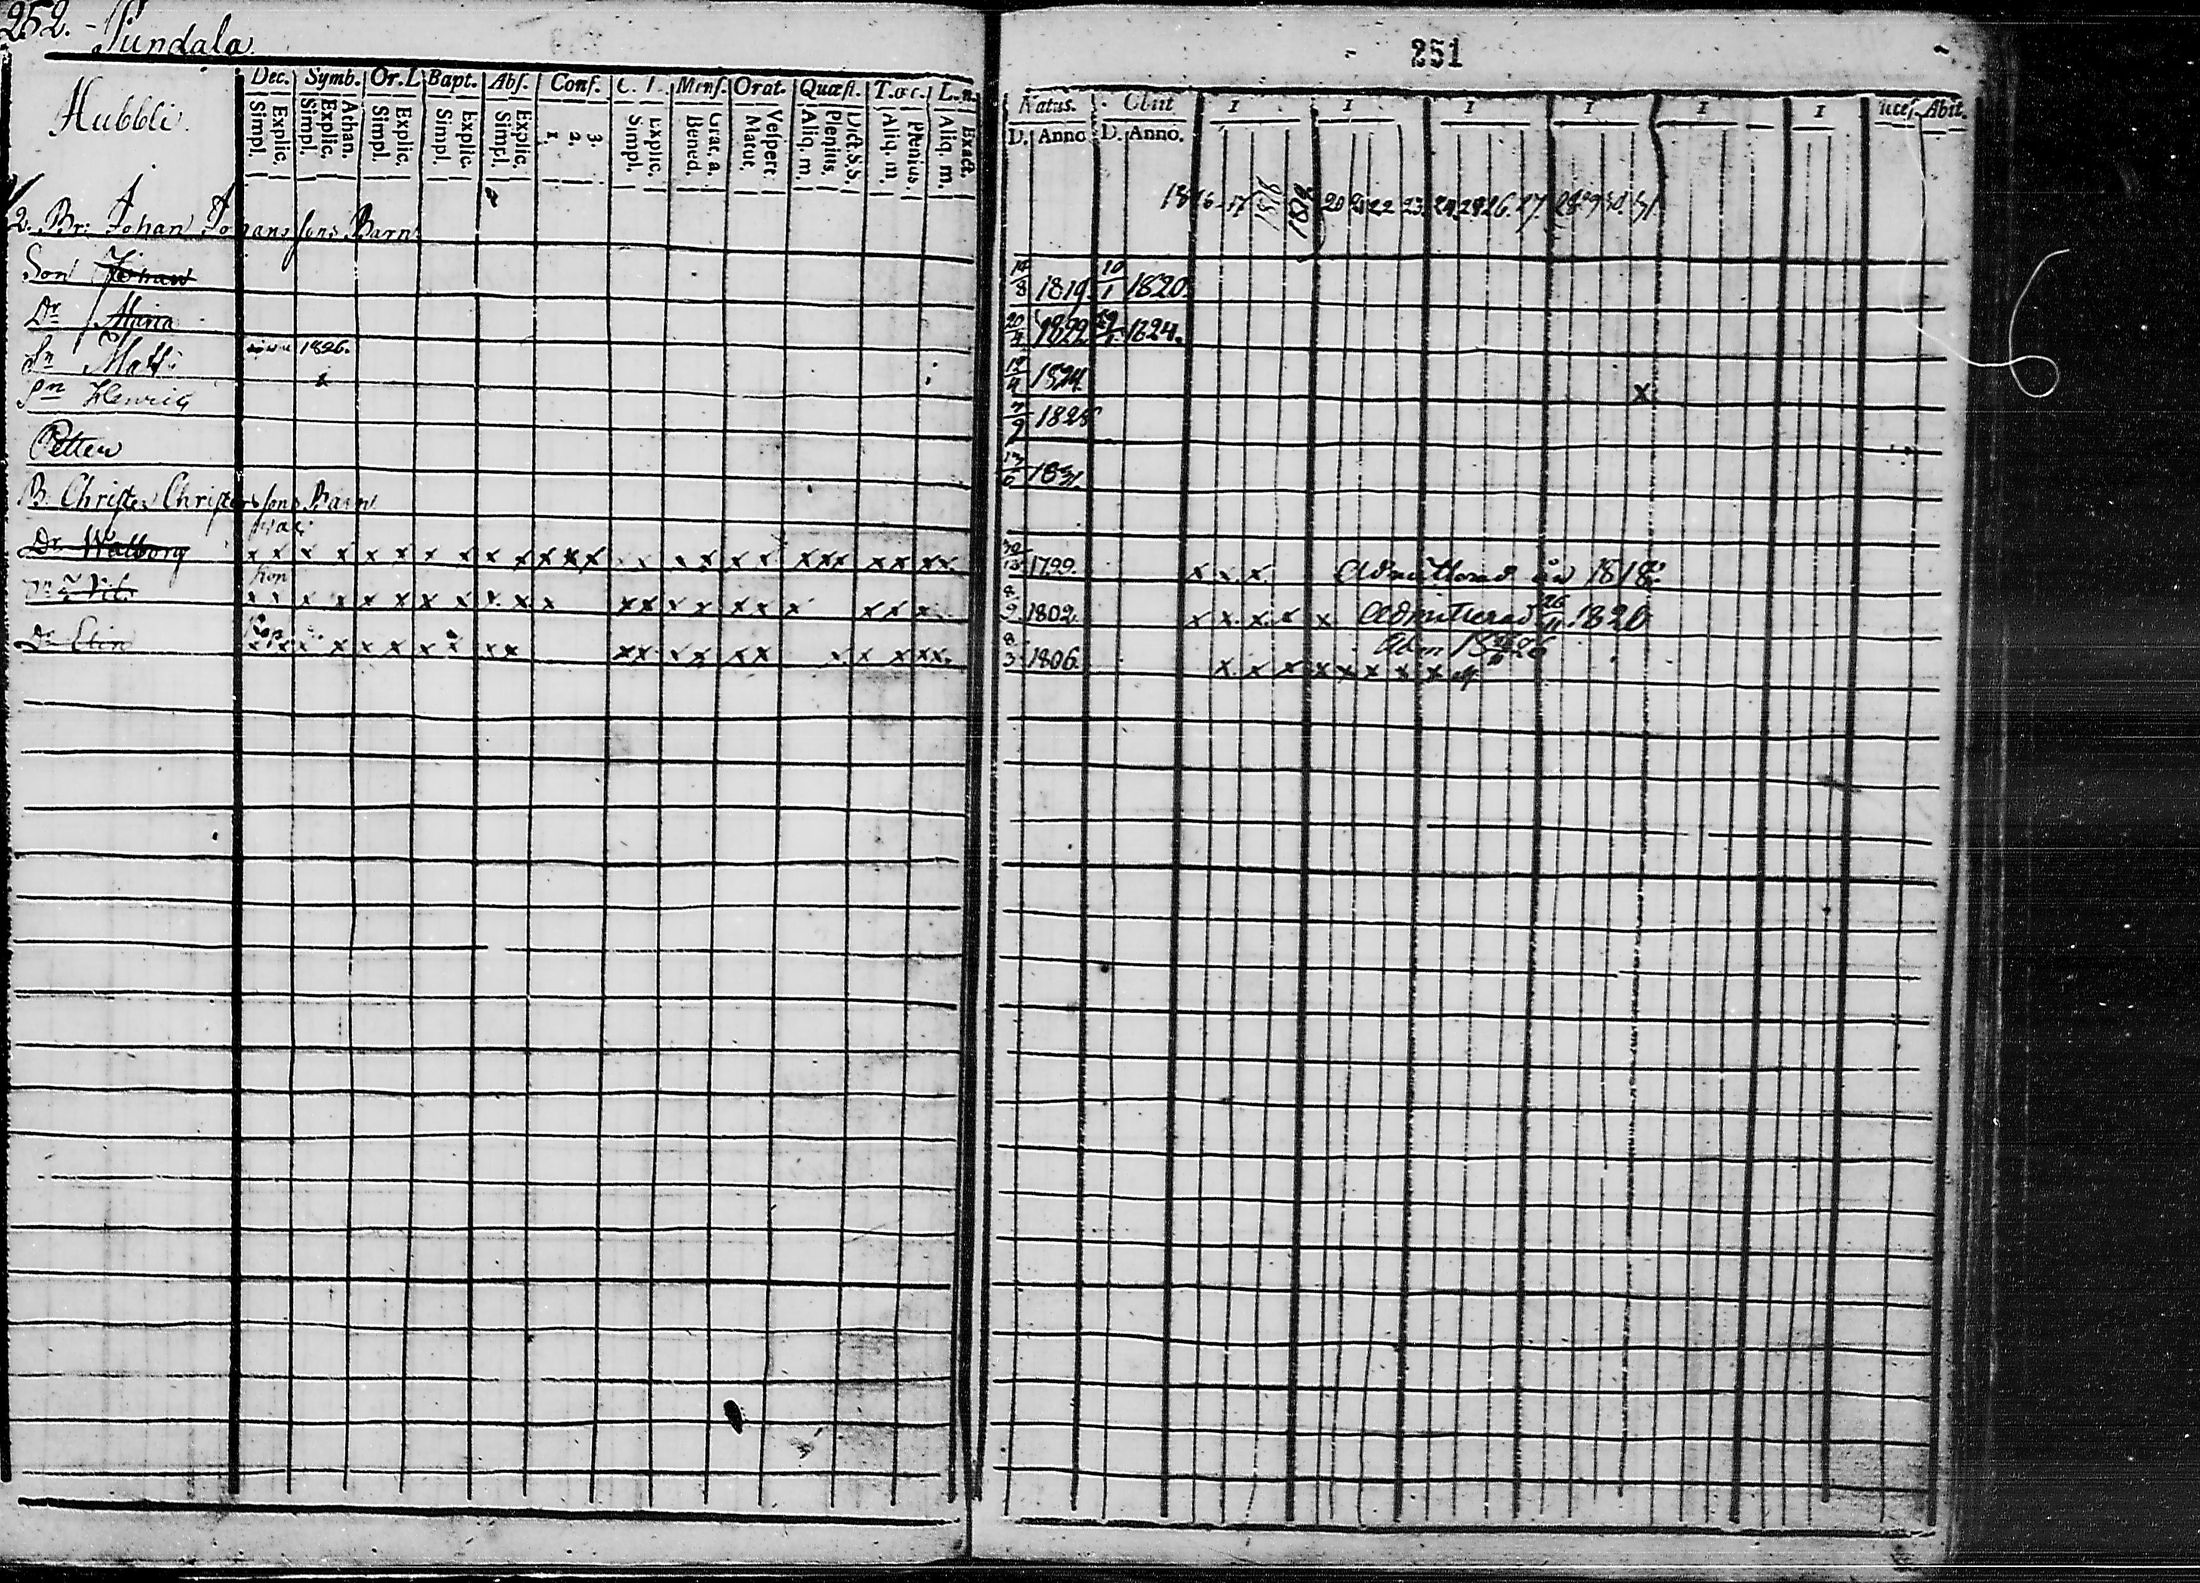 252. Pundala
251
Hubbli.
Dec. Symb. Or. L Bapt. Abs. Conf. C. I. Mens. Orat. Quæst. T. œc. L. n.
Simpl. Explic. Simpl. Explic. Athan. Simpl. Explic. Simpl. Explic. Simpl. Explic. 1. 2. 3. Simpl. Explic. Bened. Grac. a. Matut. Vespert. Aliq. m. Plenius. Dict. S. S. Aliq. m. Plenius. Aliq. m. Exact.
Natus. Obiit 1 1 1 1 1 1 Abit.
D. Anno D. Anno.
1816 17 1818 1819 20 21 22 23 24 25 26 27 28 29 30 31
2. Br: Johan Johanssons Barn
Son Johan 14/8 1819 10/1 1820.
Dr Maria 20/4 1822 1824.
Sn Matts 1826. 19/4 1824 x
Sn Henric 7/9 1825
Petter 17/6 1831.
B. Christer Christerssons Barn
Dr Walborg x x x x x x x x x x x x x x x x x x x x x x x x x x x 1799. x x x Admitterad år 1818
x x x x x x x x x x x x x x x x x x x x x 8/9 1802. x x x x x Admitterad 26/11 1820
Dr Elin x x x x x x x x x x x x x x x x x x x x x 8/3 1806. x x x x x x x x Adm 1826